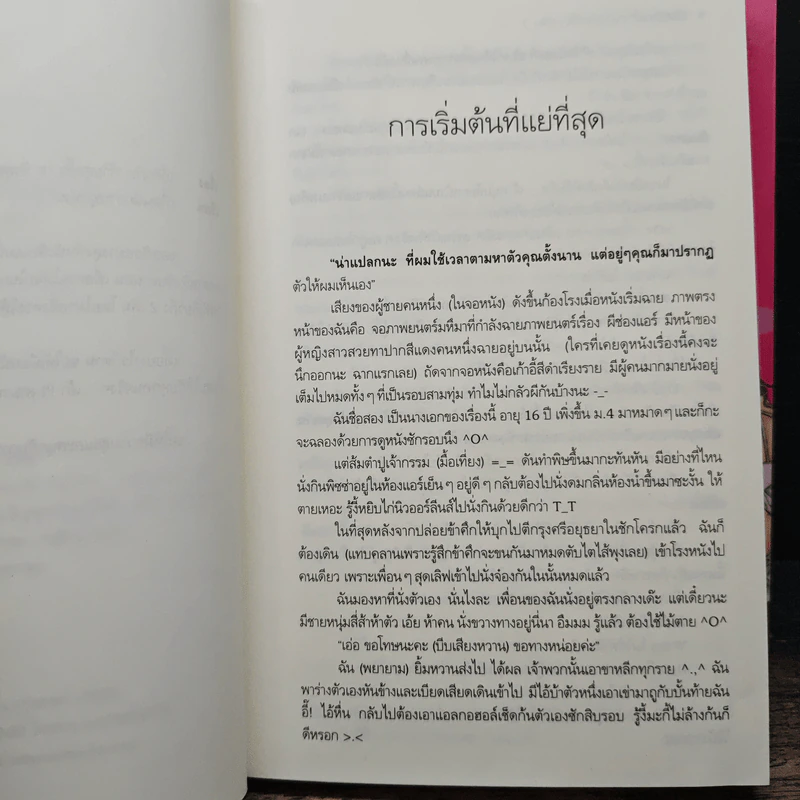 การเริ่มต้นที่แย่ที่สุด
"น่าแปลกนะ ที่ผมใช้เวลาตามหาตัวคุณตั้งนาน แต่อยู่ๆคุณก็มาปรากฏ
ตัวให้ผมเห็นเอง"
เสียงของผู้ชายคนหนึ่ง (ในจอหนัง) ดังขึ้นก้องโรงเมื่อหนังเริ่มฉาย ภาพตรง
หน้าของฉันคือ จอภาพยนตร์มหึมาที่กำลังฉายภาพยนตร์เรื่อง ผีช่องแอร์ มีหน้าของ
ผู้หญิงสาวสวยทาปากสีแดงคนหนึ่งฉายอยู่บนนั้น (ใครที่เคยดูหนังเรื่องนี้คงจะ
นึกออกนะ ฉากแรกเลย) ถัดจากจอหนังคือเก้าอี้สีดำเรียงราย มีผู้คนมากมายนั่งอยู่
เต็มไปหมดทั้งๆ ที่เป็นรอบสามทุ่ม ทำไมไม่กลัวผีกันบ้างนะ -_-
ฉันชื่อสอง เป็นนางเอกของเรื่องนี้ อายุ 16 ปี เพิ่งขึ้น ม.4 มาหมาดๆ และก็กะ
จะฉลองด้วยการดูหนังซักรอบนึง ^O^
แต่ส้มตำปูเจ้ากรรม (มื้อเที่ยง) =_= ดันทำพิษขึ้นมากะทันหัน มีอย่างที่ไหน
นั่งกินพิซซ่าอยู่ในห้องแอร์เย็นๆ อยู่ดีๆ กลับต้องไปนั่งดมกลิ่นห้องน้ำขึ้นมาซะงั้น ให้
ตายเหอะ รู้งี้หยิบไก่นิวออร์ลีนส์ไปนั่งกินด้วยดีกว่า T_T
ในที่สุดหลังจากปล่อยข้าศึกให้บุกไปตีกรุงศรีอยุธยาในชักโครกแล้ว ฉันก็
ต้องเดิน (แทบคลานเพราะรู้สึกข้าศึกจะขนกันมาหมดตับไตไส้พุงเลย) เข้าโรงหนังไป
คนเดียว เพราะเพื่อนๆ สุดเลิฟเข้าไปนั่งจ๋องกันในนั้นหมดแล้ว
ฉันมองหาที่นั่งตัวเอง นั่นไงละ เพื่อนของฉันนั่งอยู่ตรงกลางเด๊ะ แต่เดี๋ยวนะ
มีชายหนุ่มสี่สี่ห้าตัว เอ้ย ห้าคน นั่งขวางทางอยู่นี่นา อืมมม รู้แล้ว ต้องใช้ไม้ตาย ^O^
"เอ่อ ขอโทษนะคะ (บีบเสียงหวาน) ขอทางหน่อยค่ะ"
ฉัน (พยายาม) ยิ้มหวานส่งไป ได้ผล เจ้าพวกนั้นเอาขาหลีกทุกราย ^.,^ ฉัน
พาร่างตัวเองหันข้างและเบียดเสียดเดินเข้าไป มีไอ้บ้าตัวหนึ่งเอาเข่ามาถูกับบั้นท้ายฉัน
อี๊! ไอ้หื่น กลับไปต้องเอาแอลกอฮอล์เช็ดก้นตัวเองซักสิบรอบ รู้งี้มะกี้ไม่ล้างก้นก็
ดีหรอก >.<